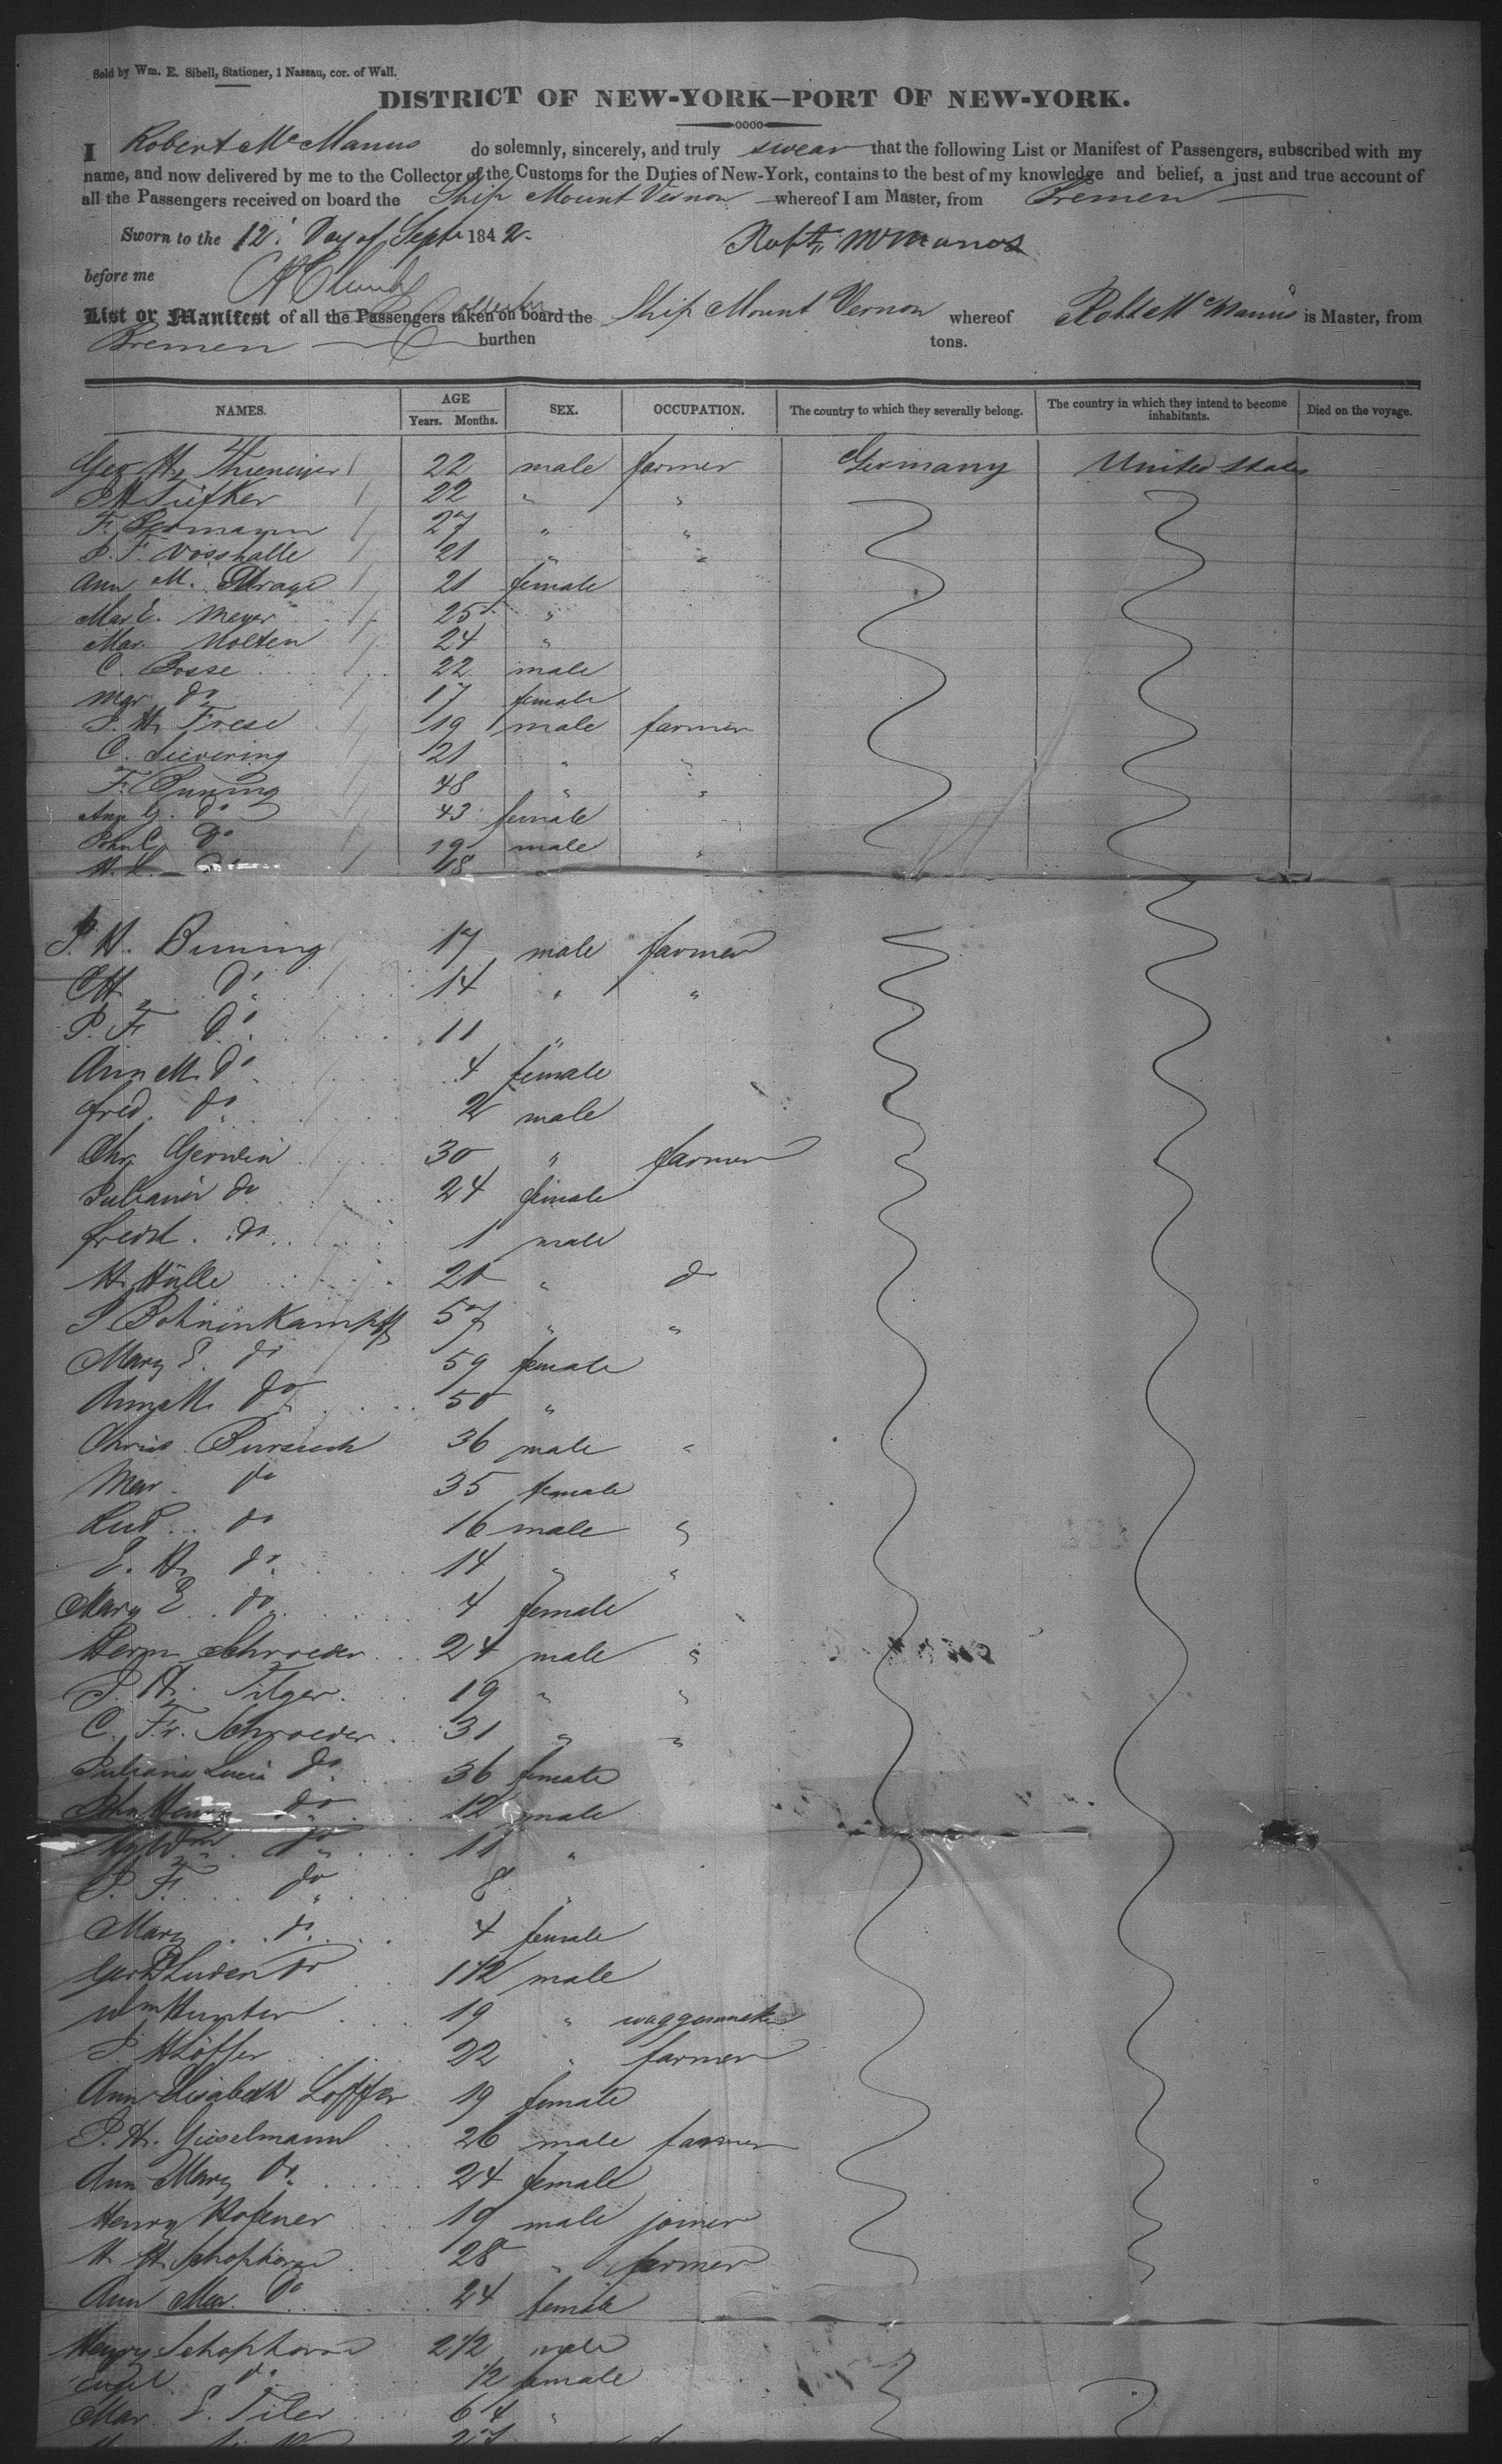 Sold by Wm. E. Sibell, Stationer, 1 Nassau, cor. of Wall.
DISTRICT OF NEW-YORK—PORT OF NEW-YORK.
I Robert McManus do solemnly, sincerely, and truly swear that the following List or Manifest of Passengers, subscribed with my
name, and now delivered by me to the Collector of the Customs for the Duties of New-York, contains to the best of my knowledge and belief, a just and true account of
all the Passengers received on board the Ship Mount Vernon whereof I am Master, from Bremen
Sworn to the 12. Day of Sept 1842. Robt McManus
before me
List or Manifest of all the Passengers taken on board the Ship Mount Vernon whereof Robt McManus is Master, from
Bremen burthen tons.
NAMES. AGE SEX. OCCUPATION. The country to which they severally belong. The country in which they intend to become inhabitants. Died on the voyage.
Years. Months.
Geo H. 22 male farmer Germany United States
22 " "
F. 27 " "
F. Vosshalle 21 " "
Ann M. 21 female
Mar E. Meyer 25 "
Mar. Nolten 24 "
C. Bosse 22 male
Mar do 17 female
J. H. Frese 19 male farmer
C. Sievering 21 " "
F. Buning 48 " "
Ann G. do 43 female
John C. do 19 male "
18
J. H. Buning 17 male farmer
do 14 " "
J. F. do 11 "
Ann M. do 4 female
Fred. do 2 male
Chr Gerwin 30 " farmer
do 24 female
Fredd. do 1 male
H. Hülle 20 " do
J. Bohninkampff 57 " "
Mary E. do 59 female
Ann M. do 50 "
Chris. 36 male "
Mar. do 35 female
do 16 male "
E. H. do 14 " "
Mary E. do 4 female
Herm Schroeder 24 male "
J. H. Tilger 19 " "
C. Fr. Schroeder 31 " "
Juliana Lucia do 36 female
John Henry do 12 male
do 11 "
J. F. do 8 "
Mary do 4 female
do 1 1/2 male
Wm Hunter 19 " waggonmaker
J. H Löffer 22 " farmer
Ann Elisabeth Loffer 19 female
J. H. Gieselmann 26 male farmer
Ann Mary do 24 female
Henry Hofener 19 male joiner
H. H. Schophorn 28 " farmer
Ann Mar. do 24 female
Henry Schophorn 2 1/2 male
Engel do 1/2 female
Mar. E. Tiler 64 "
27